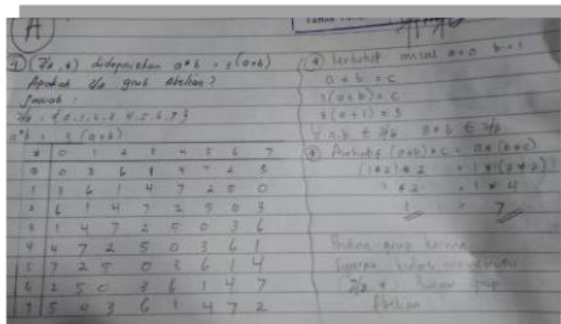 A
(Z/8, *) didefinisikan a*b = 3(a+b)
Apakah Z/8 grup Abelian?
Jawab :
Z/8 = {0, 1, 2, 3, 4, 5, 6, 7}
a*b = 3(a+b)
* 0 1 2 3 4 5 6 7
0 0 3 6 1 4 7 2 5
1 3 6 1 4 7 2 5 0
2 6 1 4 7 2 5 0 3
3 1 4 7 2 5 0 3 6
4 4 7 2 5 0 3 6 1
5 7 2 5 0 3 6 1 4
6 2 5 0 3 6 1 4 7
7 5 0 3 6 1 4 7 2
* Tertutup misal a=0 b=1
a * b = c
3(a+b) = c
3(0+1) = 3
∀ a,b ∈ Z/8 a*b ∈ Z/8
* (a*b)*c = a*(b*c)
(1*2)*2 = 1*(2*2)
1*2 = 1*4
1 = 7
Bukan grup karena
(Z/8, *) bukan grup
Abelian